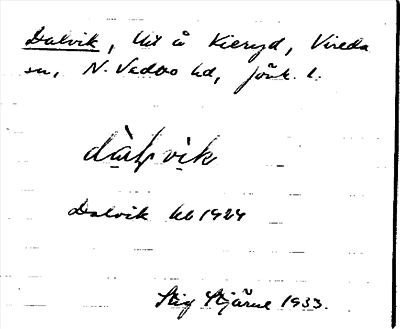 Dalvik, lht å Kieryd, Vireda
sn, N. Vedbo hd, Jönk. l.
dàlvik
Dalvik kb 1929
Stig Stjärne 1933.